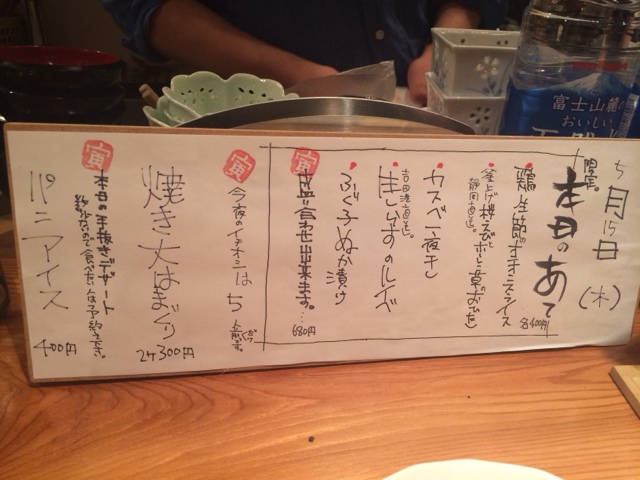 5月15日(木)
本日のあて
各400円
鶏生節のオニオンスライス
釜上げ桜えびと
静岡直送。
カスベ一夜干し
生しらすのルイベ
吉田港直送。
ふぐ子ぬか漬け
寅
盛り合わせ出来ます。…680円
寅
今夜のイチオシは
焼き大はまぐり
2ケ300円
寅
本日の手抜きデザート
パニアイス
400円
富士山麓の
おいしい